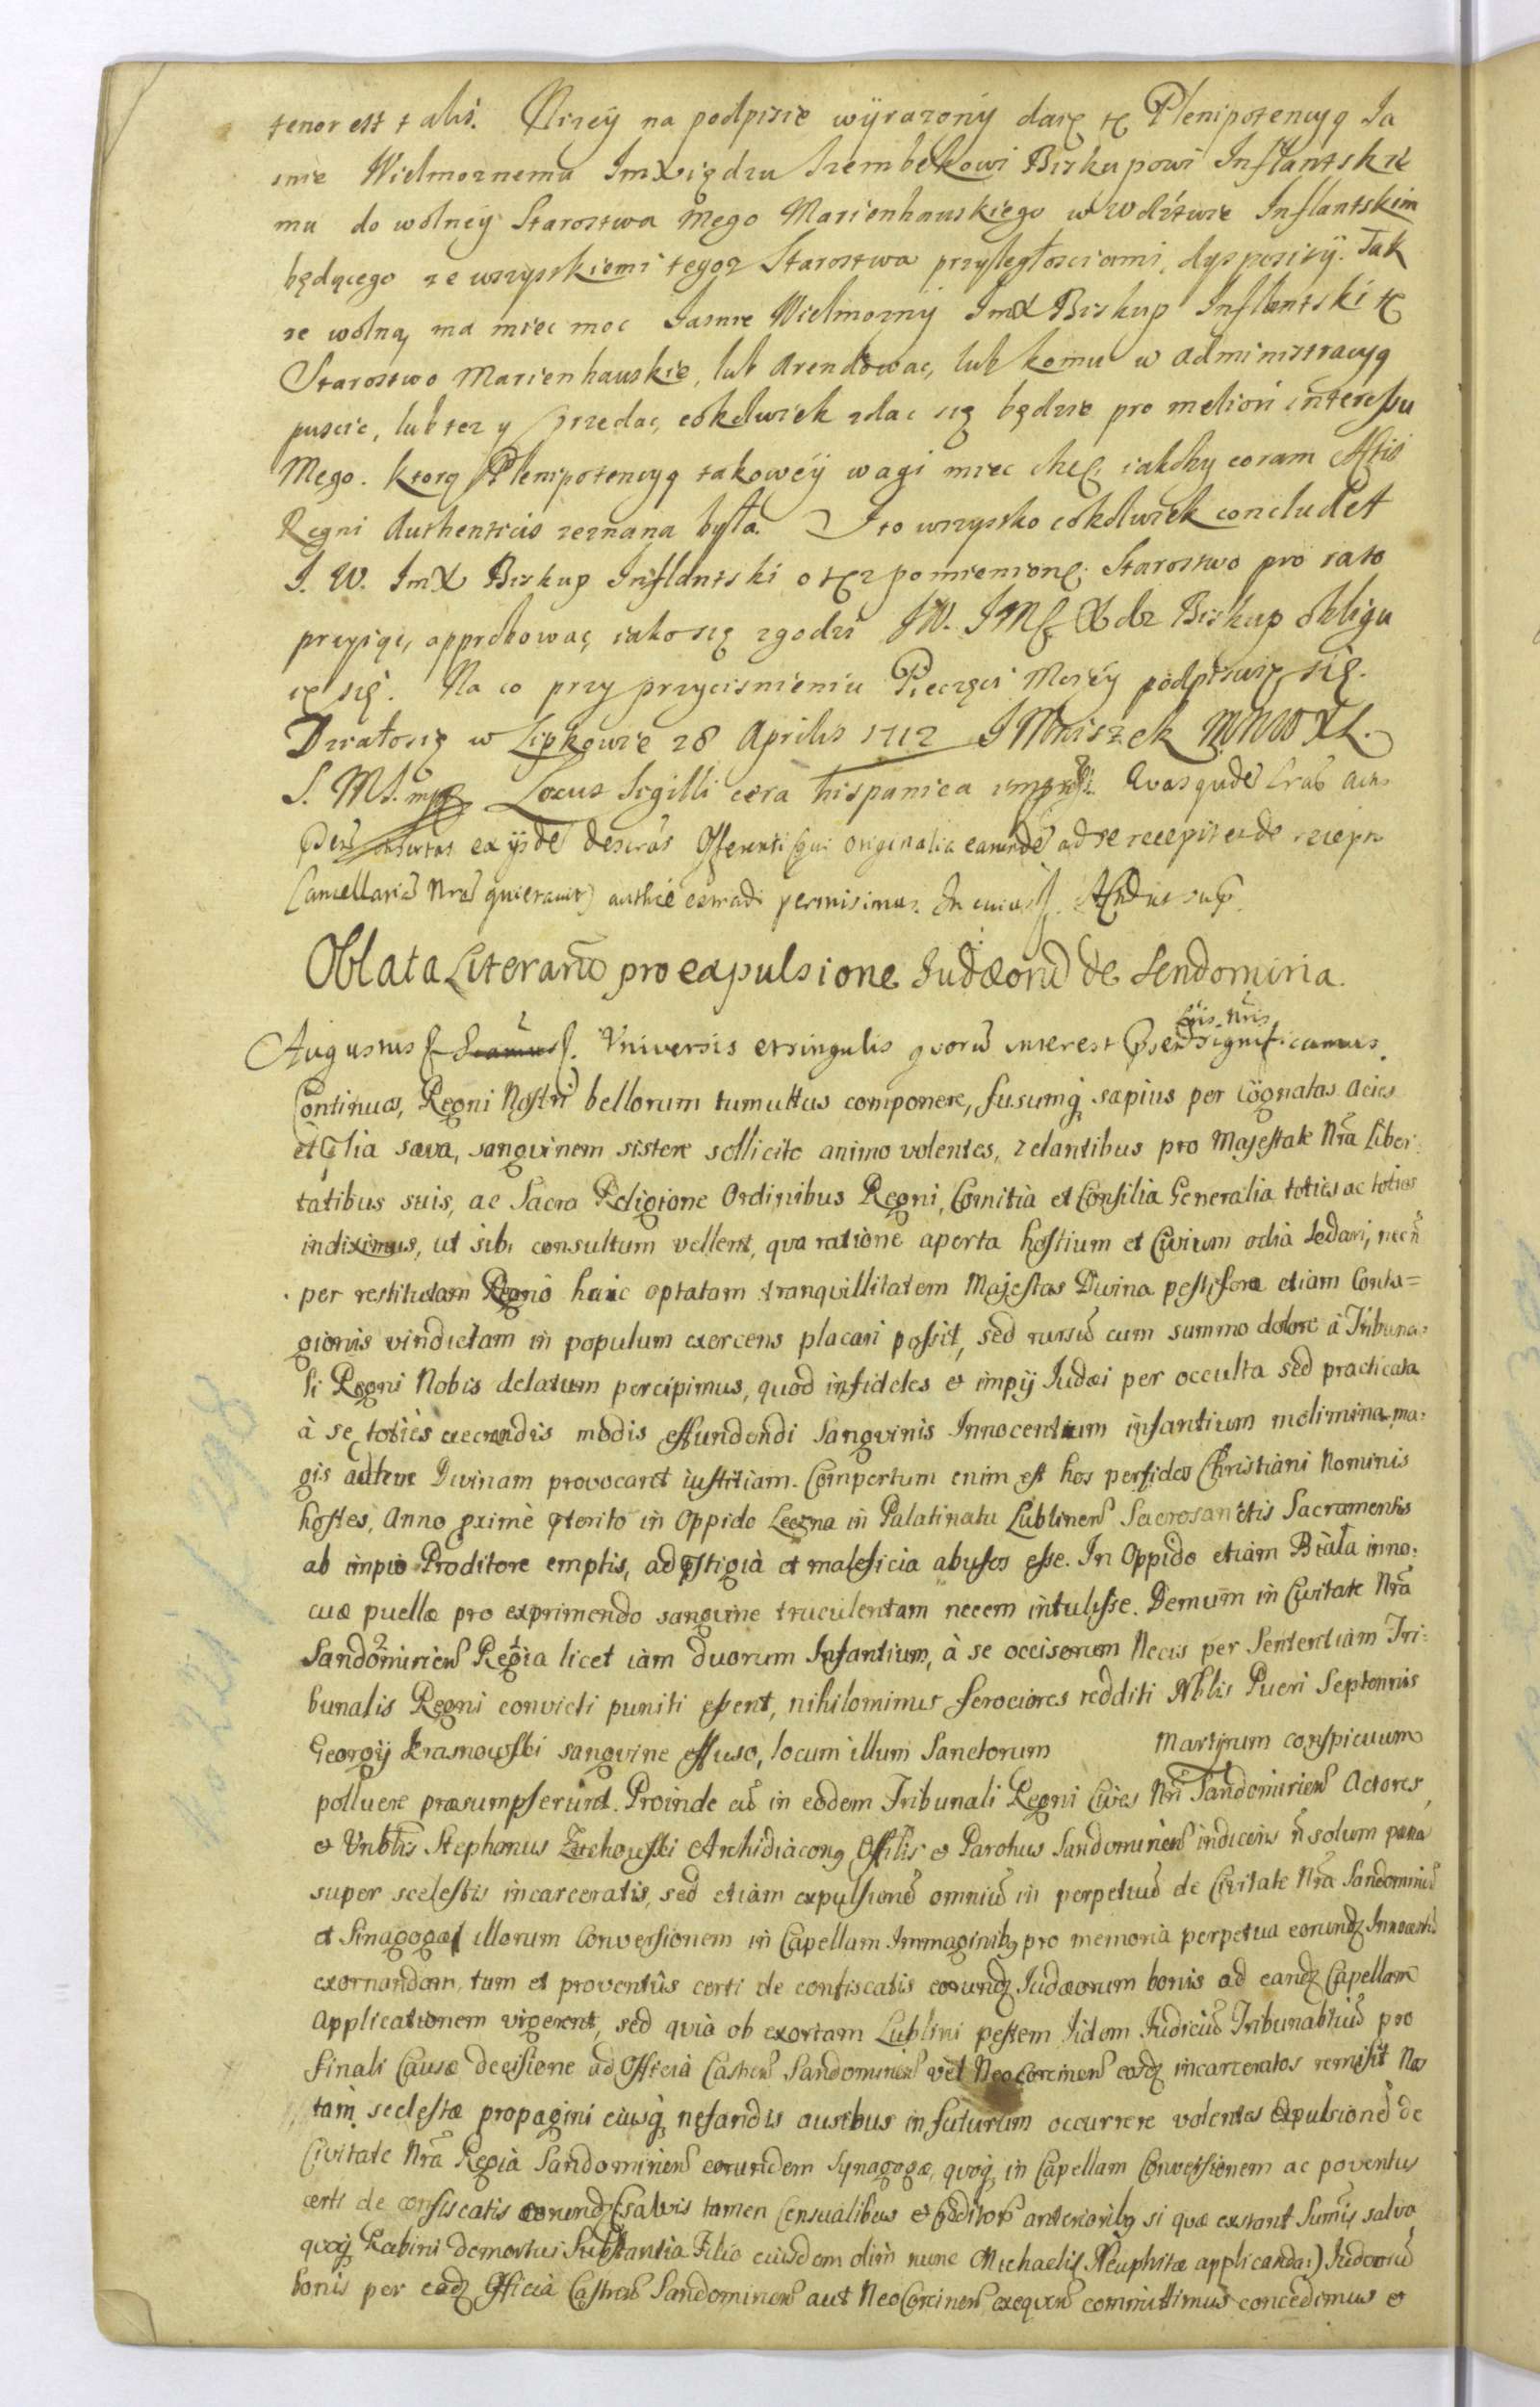 tenor est talis. Nizey na podpisie wyrazony daię tę Plenipotencyą Ja
snie Wielmoznemu ImXiędzu Szembekowi Biskupowi Inflantskie
mu do wolney Starostwa mego Marienhauskiego w Wdztwie Inflantskim
będącego ze wszyskiemi tegoz Starostwa przyległosciami, dyspozisÿ. Tak
ze wolną ma miec moc Jasnie Wielmozny ImX Biskup Inflantski tę
Starostwo Marienhauskie, lub Arendowac, lub komu w administracyą
puscic, lub tez y przedac, cokolwiek zdac się będzie pro meliori interessu
Mego. Ktorą Plenipotencyą takowey wagi miec chcę iakoby coram Actis
Regni Authenticis zeznana była. I to wszystko cokolwiek concludet
J. W. ImX Biskup Inflantski o tęz pomienionę Starostwo pro rato
przyiąc, approbowac, iako się zgodzi JW. JMſ Xdz Biskup obligu
ię się. Na co przy przycisnieniu Pieczęci Moiey podpisuię się.
Działo się w Lipkowie 28 Aprilis 1712 J Mniszek MNWXL.
S. MS. mp Locus Sigilli cera hispanica impressi. Quasquidē Lrās
insertas ex ijsdē descrās Offerenti (qui originalia earundē ad se recepit et de recepto
Cancellariā Nrā quietavit) authcē extradi permisimus. In cuius
Oblata Literarū pro expulsione Judæorū de Sendomiria.
Augustus Universis et singulis quorū interest Pñtibus Lris Nris significamus.
Continuos, Regni Nostri bellorum tumultus componere, fusumq̨ sæpius per cognatas acies
et alia sæva, sangvinem sistere sollicito animo volentes, zelantibus pro Majestate Nrā Liber:
tatibus suis, ac Sacra Religione Ordinibus Regni, Comitia et Consilia Generalia toties ac toties
indiximus, ut sibi consultum vellent, qva ratione aperta hostium et Civium odia sedari, necñ
per restitutam Regno huic optatam tranquillitatem Majestas Divina pestifera etiam Conta=
gionis vindictam in populum exercens placari possit, sed rursū cum summo dolore à Tribuna:
li Regni Nobis delatum percipimus, quod infideles et impij Judæi per occulta sed practicata
à se toties execrandis modis effundendi Sangvinis Innocentium infantium molimina ma:
gis adhuc Divinam provocaret iustitiam. Compertum enim est hos perfidos Christiani Nominis
hostes, Anno proximè præterito in Oppido Leczna in Palatinatu Lublinen̄ Sacrosanctis Sacramentis
ab impio Proditore emptis, ad præstigia et maleficia abusos esse. In Oppido etiam Biała inno:
cuæ puellæ pro exprimendo sangvine truculentam necem intulisse. Demum in Civitate Nrā
Sandomirien̄ Regia licet iàm duorum Infantium, à se occisorum Necis per Sententiam Tri:
bunalis Regni convicti puniti essent, nihilominus ferociores redditi Nblis Pueri Septennis
Georgij Krasnowski sangvine effuso, locum illum Sanctorum Martyrum conspicuum
polluere præsumpserunt. Proinde cū in eodem Tribunali Regni Cives Nri Sandomirien̄ Actores,
et Vnblis Stephanus Zuchowski Archidiacong Offilis et Parochus Sandomirien̄ indicens ñ solum pæna
super scelestis incarceratis, sed etiàm expulsionē omniū in perpetuū de Civitate Nrā Sandomiriē
et Sinagogæ illorum Conversionem in Capellam Immaginibg pro memoria perpetua eorundz Innocentū
exornandam, tum et proventûs certi de confiscatis eorundz Judæorum bonis ad eandz Capellam
Applicationem vigerent, sed quià ob exortam Lublini pestem Iidem Judiciū Tribunalitiū pro
finali Causæ decisione ad Officia Castren̄ Sandomirien̄ vel NeoCorcinen̄ eosdz incarceratos remisit Nos
tàm scelestæ propagini eiusq̨ nefandis ausibus in futurum occurrere volentes expulsionē de
Civitate Nrā Regià Sandomirien̄ eorundem Synagogæ, quoq̨ in Capellam Conversionem ac poventus
certi de confiscatis eorundz (salvis tamen Censualibus et Creditorū anterioribg si quæ extant Sumis salva
quoq̨ Rabini demortui Substantia Filio eiusdem olim nunc Michaelis Neuphitæ applicanda:) Judæorū
bonis per eadz Officia Castren̄ Sandomirien̄ aut NeoCorcinen̄ exequen̄ committimus concedimus et